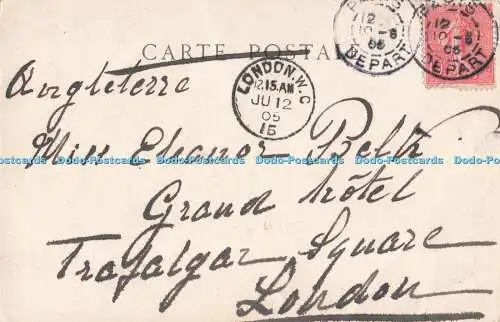 CARTE POSTALE
DEPART
DEPART
LONDON.W.C
12.15.AM
JU 12
05
15
Angleterre
Miss Eleanor
Grand hôtel
Trafalgar Square
London
Dodo-Postcards Dodo-Postcards Dodo-Postcards Dodo-Postcards Dodo-Postcards